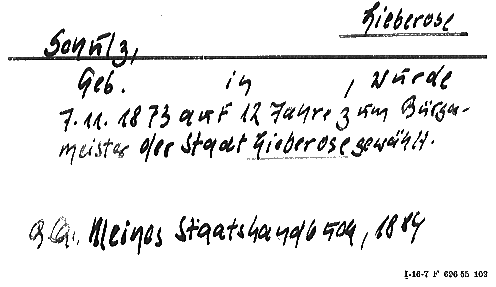 Lieberose
Schulz,
Geb. in , wurde
7.11.1873 auf 12 Jahre zum Bürger-
meister der Stadt Lieberose gewählt.
Kleines Staatshandbuch, 1884
I-16-7 F 626 55 103